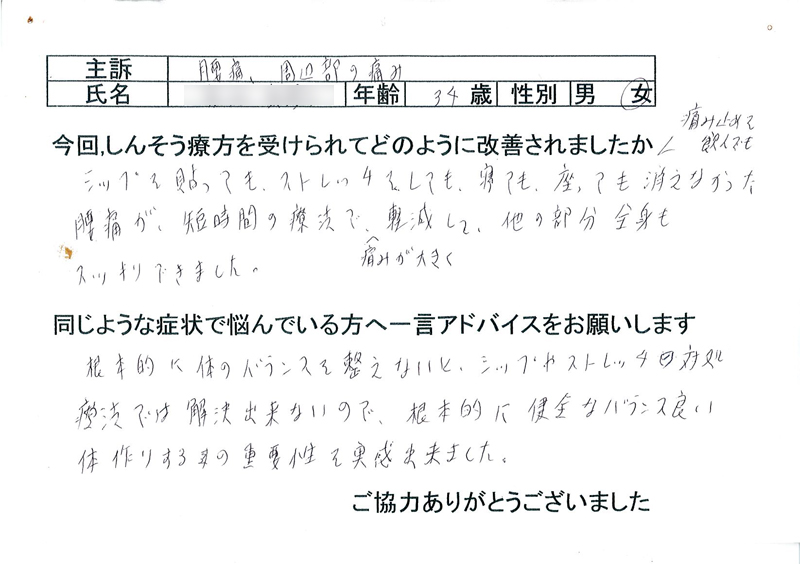 主訴 腰痛、周辺部の痛み
氏名 年齢 34 歳 性別 男 女
今回,しんそう療方を受けられてどのように改善されましたか
痛み止めを
飲んでも
シップを貼っても、ストレッチをしても、寝ても、座っても消えなかった
腰痛が、短時間の療法で、軽減して、他の部分 全身も
痛みが大きく
スッキリできました。
同じような症状で悩んでいる方へ一言アドバイスをお願いします
根本的に体のバランスを整えないと、シップやストレッチ 対処
療法では解決出来ないので、根本的に健全なバランス良い
体作りする 重要性を実感出来ました。
ご協力ありがとうございました